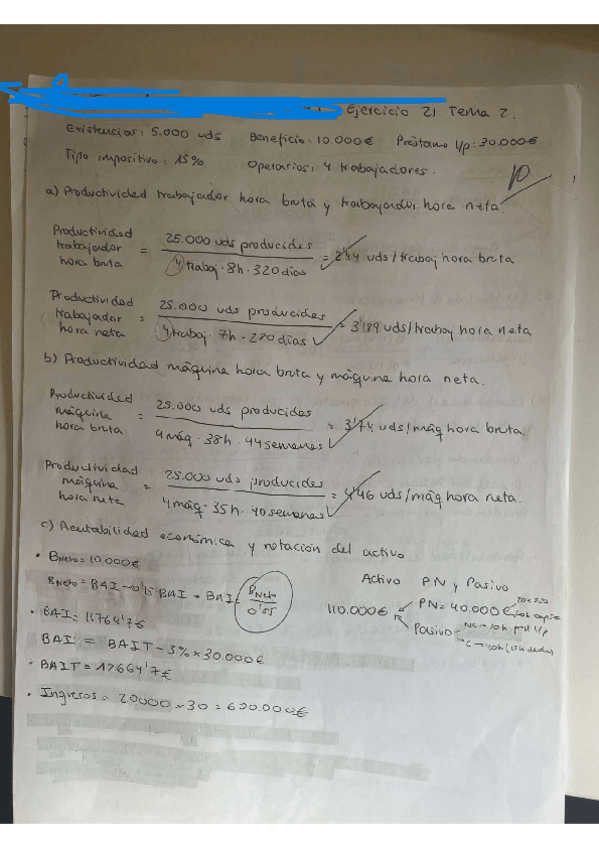 Ejercicio 21 Tema 2.
Existencias: 5.000 uds Beneficio: 10.000€ Préstamo l/p: 30.000€
Tipo impositivo: 15% Operarios: 4 trabajadores.
10
a) Productividad trabajador hora bruta y trabajador hora neta.
Productividad trabajador hora bruta = 25.000 uds producidas / 4 trabaj · 8h · 320 días = 2'44 uds/trabaj hora bruta
Productividad trabajador hora neta = 25.000 uds producidas / 4 trabaj · 7h · 230 días = 3'89 uds/trabaj hora neta
b) Productividad máquina hora bruta y máquina hora neta.
Productividad máquina hora bruta = 25.000 uds producidas / 4 máq · 38h · 44 semanas = 3'74 uds/máq hora bruta.
Productividad máquina hora neta = 25.000 uds producidas / 4 máq · 35h · 40 semanas = 4'46 uds/máq hora neta.
c) Rentabilidad económica y rotación del activo
• BNeto = 10.000€
BNeto = BAI - 0'15 · BAI → BAI = BNeto / 0'85
• BAI = 11764'7€
BAI = BAIT - 3% × 30.000€
• BAIT = 12664'7€
• Ingresos = 20000 × 30 = 600.000€
Activo PN y Pasivo
110.000€ PN = 40.000€
Pasivo